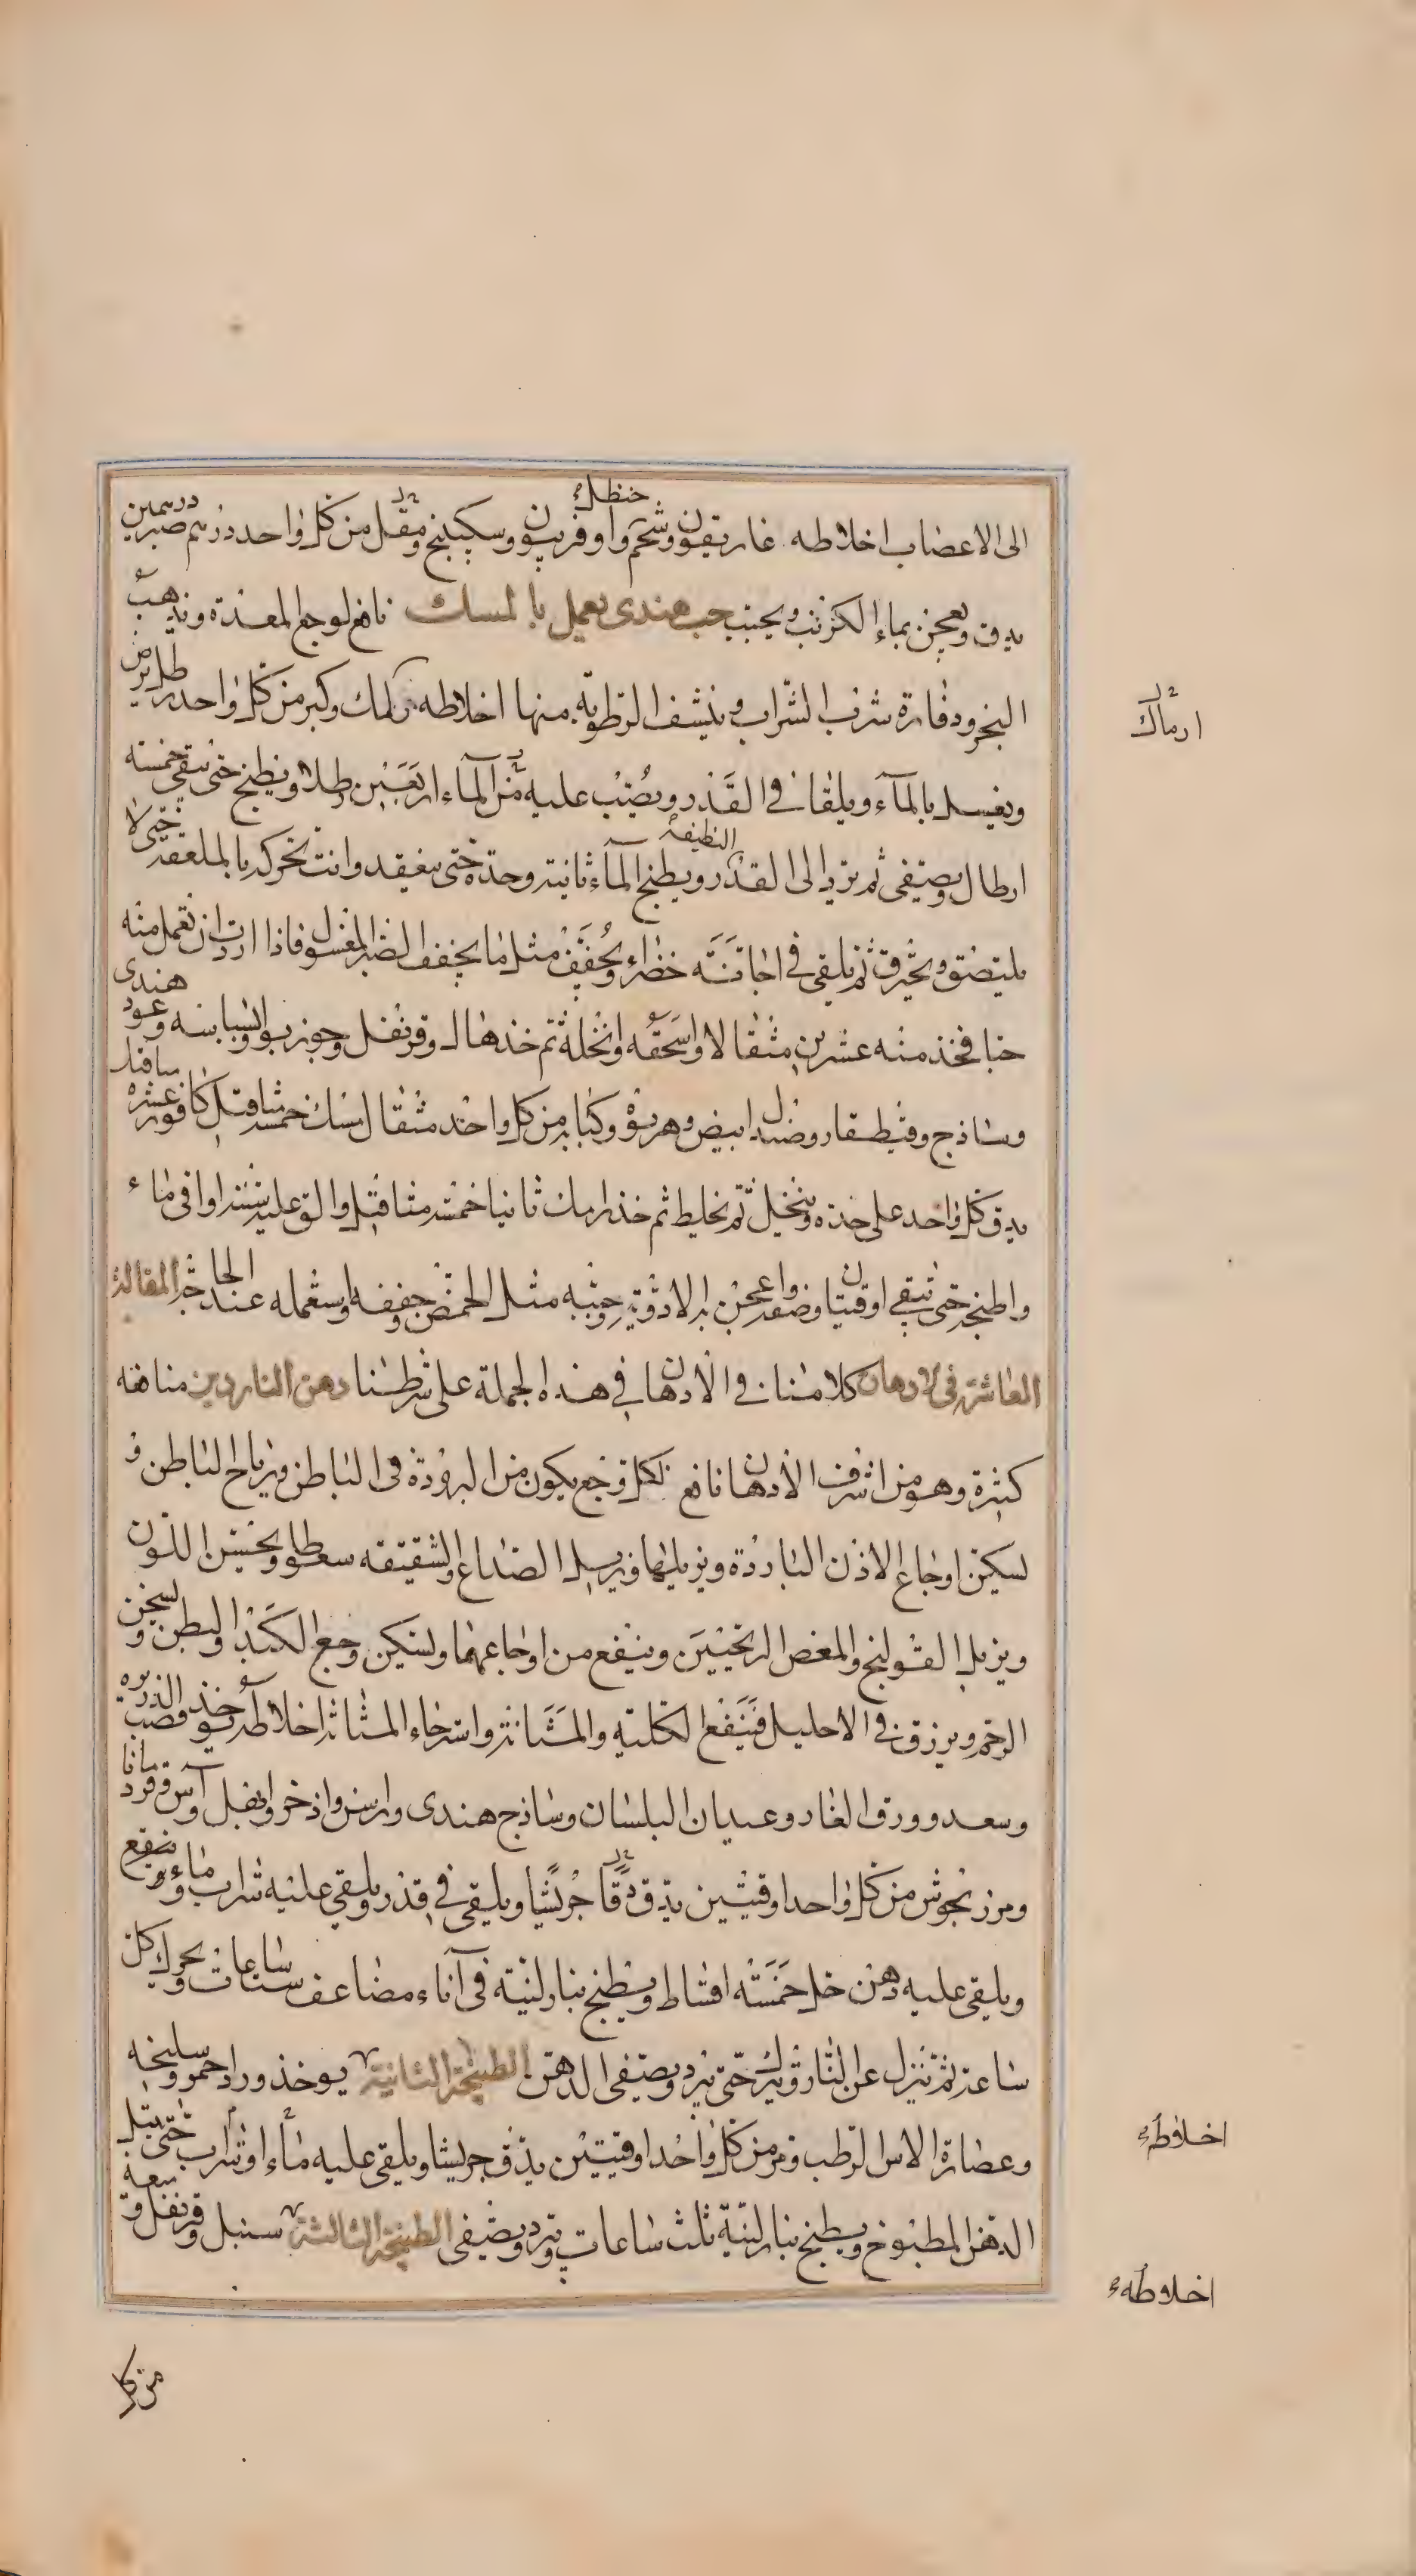 الى الاعضاب اخلاطه غاريقون وشحم حنظل واوفربيون وسكبينج ومقل من كل واحد درهم صبر درهمين
يدق ويعجن بماء الكرنب ويحبب حب هندى يعمل بالمسك نافع لوجع المعدة ويذهب
البخر ودفارة شرب الشراب وينشف الرطوبة منها اخلاطه رامك وكبر من كل واحد رطل يرض
ويغسل بالمآء ويلقا فى القدر ويصب عليه من المآء اربعين رطلا ويطبخ حتى يبقى خمسته
ارطال ويصفى ثم يرد الى القدر النظيفه ويطبخ المآء ثانيته وحده حتى ينعقد وانت تحركه بالملعقه حتى لا
يلتصق ويحترق ثم يلقى فى اجانته خضراء ويجفف مثل ما يجفف الصبر المغسول فاذا اردت ان تعمل منه
حبا فخذ منه عشرين مثقالا واسحقه وانخله ثم خذ هال وقرنفل وجوز بوا وبسباسه وعود هندى
وساذج وفيطفار وصندل ابيض وهرنوه وكبابه من كل واحد مثقال مسك خمسه مثاقيل كافور عشره مثاقيل
يدق كل واحد على حده وينخل ثم يخلط ثم خذ ارماك ثانيا خمسه مثاقيل والق عليه فى ماء
واطبخه حتى يبقى اوقيتان وصفه واعجن به الادويه وحببه مثل الحمص وجففه واستعمله عند الحاجه المقالة
العاشرة فى الادهان كلامنا فى الادهان فى هذه الجملة على شرطنا دهن الناردين منافعه
كثيرة وهو من اشرف الادهان نافع لكل وجع يكون من البرودة فى الباطن ورياح الباطن و
يسكن اوجاع الاذن الباردة ويزيلها ويزيل الصداع والشقيقه سعوطا ويحسن اللون
ويزيل القولنج والمغص الريحيين وينفع من اوجاعهما ويسكن وجع الكبد والبطن ويسخن
الرحم ويزرق فى الاحليل فينفع الكلية والمثانة واسترخاء المثانة اخلاطه يوخذ قصب الذريره
وسعد وورق الغار وعيدان البلسان وساذج هندى وراسن واذخر آس وقردمانا
ومرزنجوش من كل واحد اوقيتين يدق دقا جريشا ويلقى فى قدر ويلقى عليه شراب وماء وينقع
ويلقى عليه دهن خل خمسته اقساط ويطبخ بنار لينة فى آناء مضاعف ست ساعات ويحرك كل
ساعة ثم ينزل عن النار ويترك حتى يبرد ويصفى الدهن الطبخة الثانية يوخذ ورد احمر وسليخه
وعصارة الاس الرطب ومر من كل واحد اوقيتين يدق جريشا ويلقى عليه مآء او شراب حتى يبتل
الدهن المطبوخ ويطبخ بنار لينة ثلث ساعات ويبرد ويصفى الطبخة الثالثة سنبل وقرنفل وميعة
من كل
ارماك
اخلاطه
اخلاطه